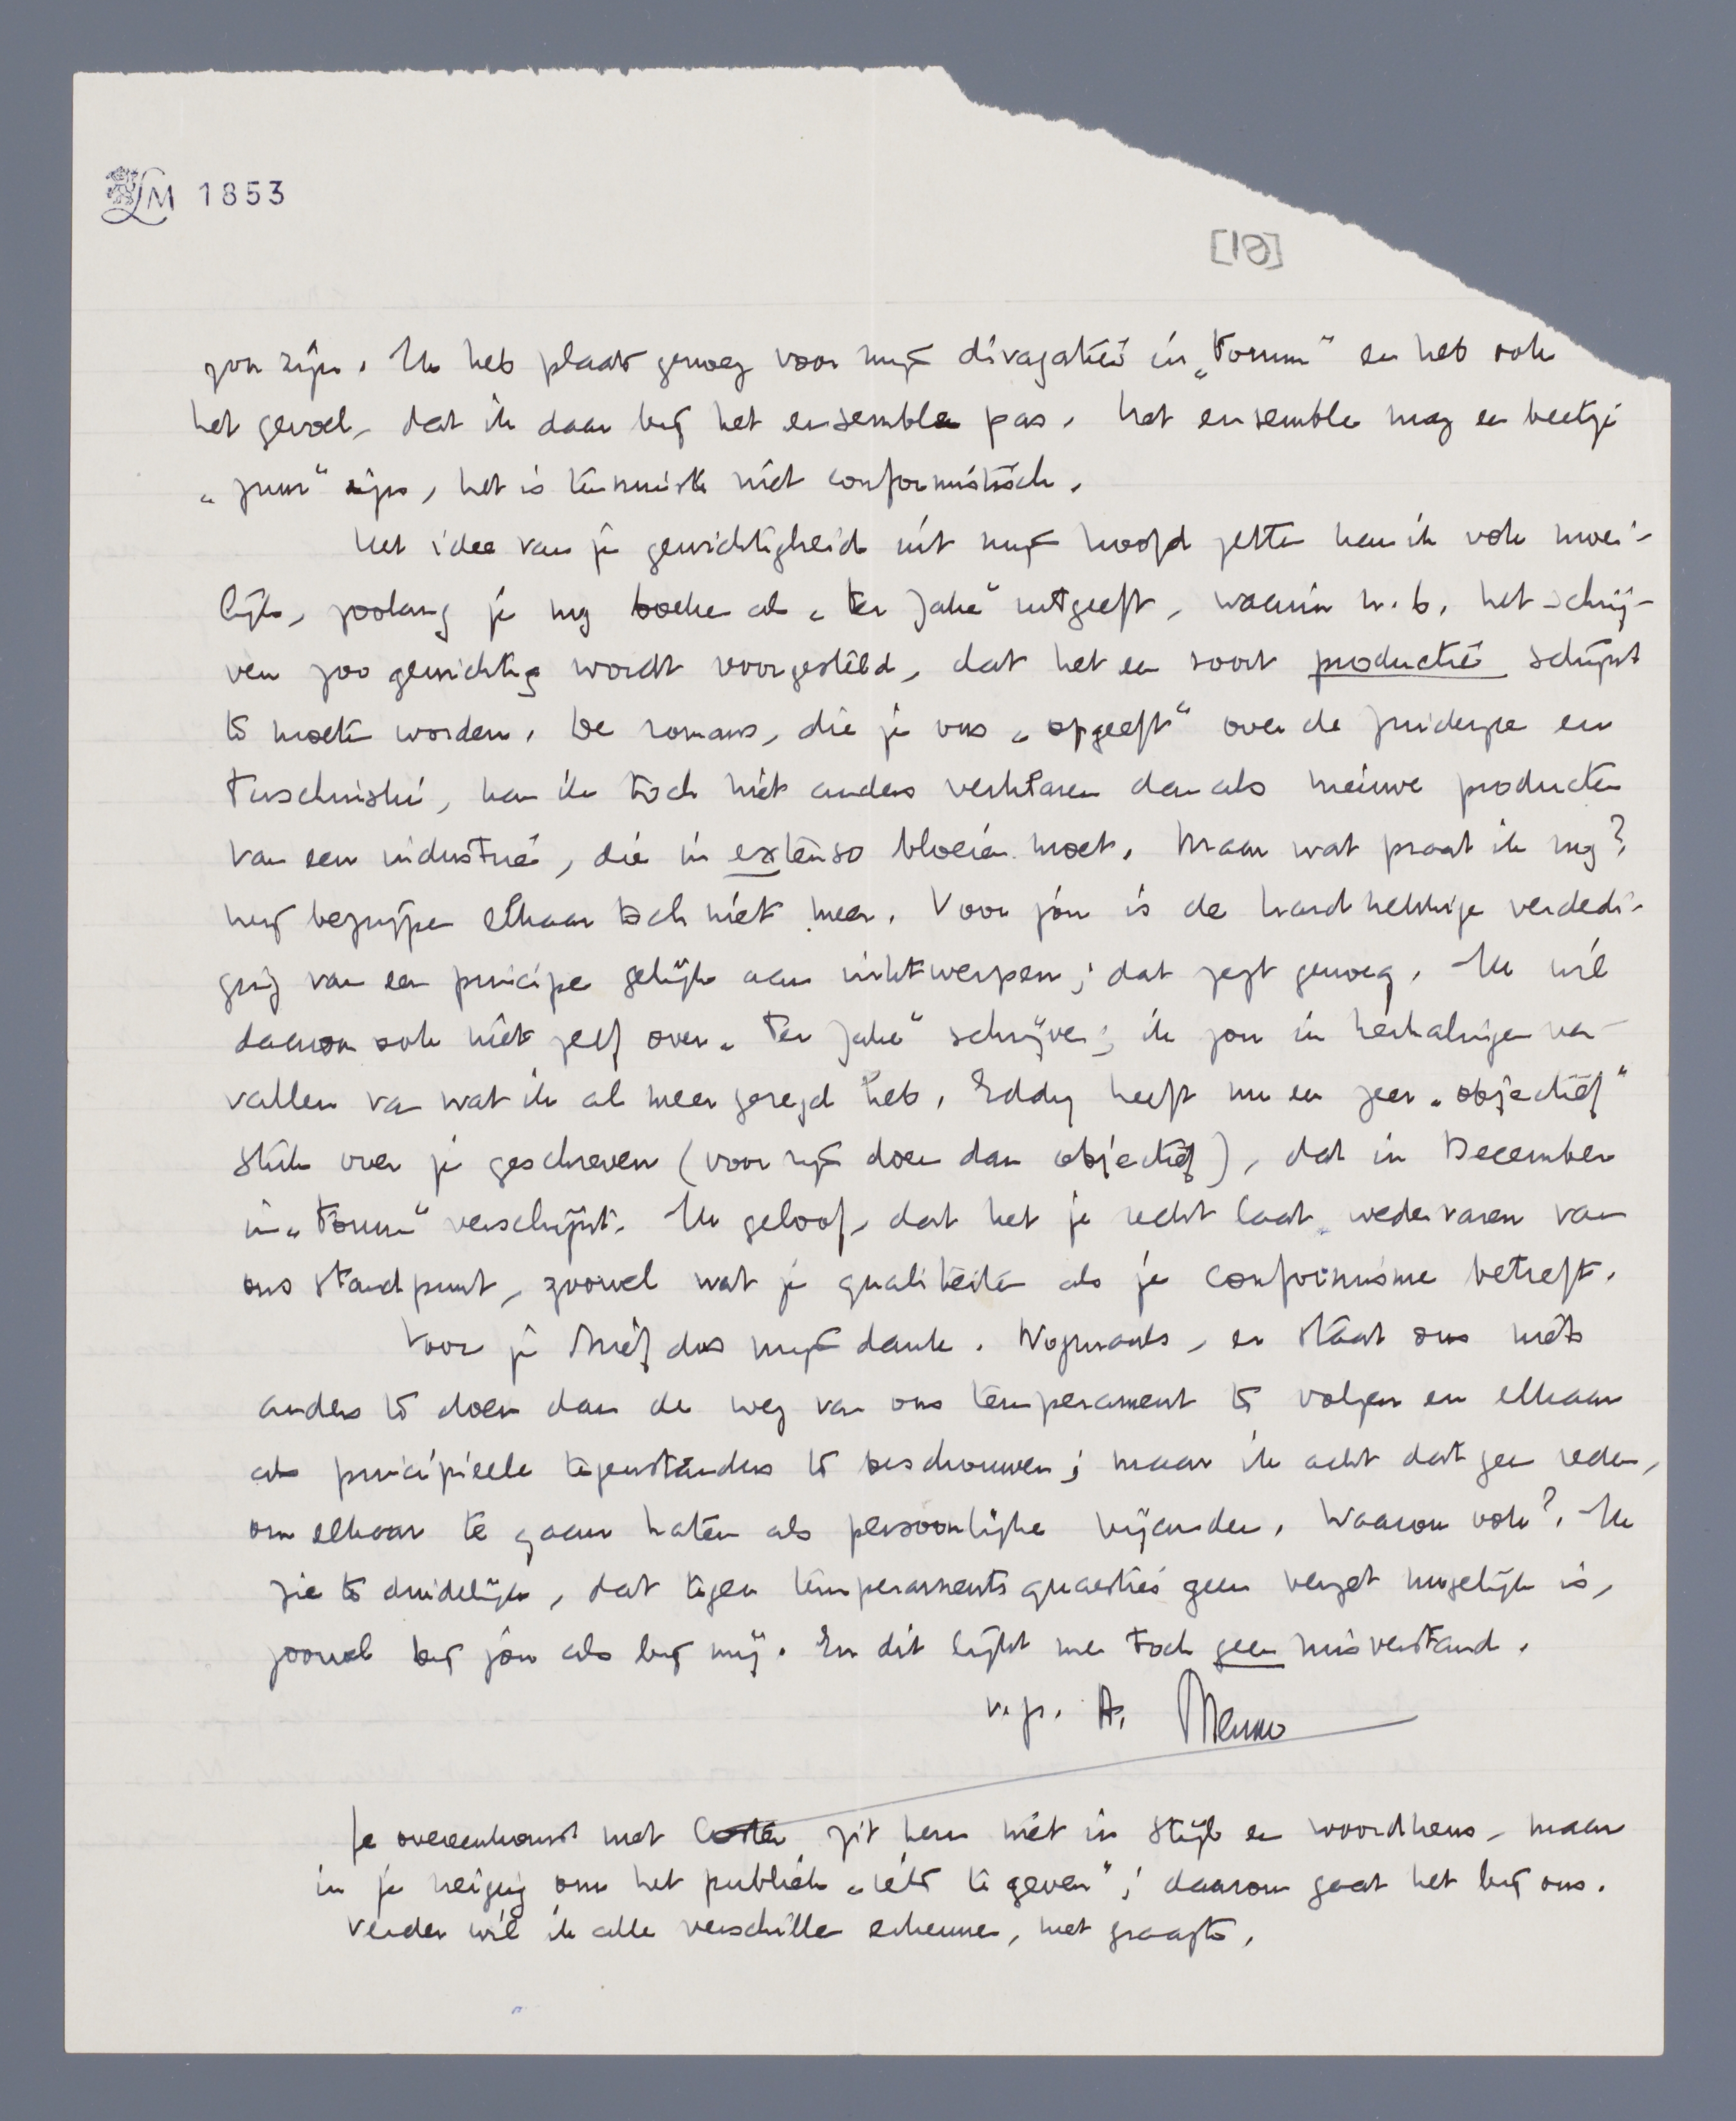 LM 1853
[10]
zou zijn. Ik heb plaats genoeg voor mijn divagaties in „Forum" en heb ook
het gevoel, dat ik daar bij het ensemble pas. Het ensemble mag een beetje
„puur" zijn, het is tenminste niet conformistisch.
Het idee van je gewichtigheid uit mijn hoofd zetten kan ik ook moei-
lijk, zoolang je nog boeken als „Ter Zake" uitgeeft, waarin n.b. het schrij-
ven zoo gewichtig wordt voorgesteld, dat het een soort productie schijnt
te moeten worden. De romans, die je ons „opgeeft" over de Zuiderzee en
Tuschinski, kan ik toch niet anders verklaren dan als nieuwe producten
van een industrie, die in extenso bloeien moet. Maar wat praat ik nog?
Wij begrijpen elkaar toch niet meer. Voor jou is de hardnekkige verdedi-
ging van een principe gelijk aan inktwerpen; dat zegt genoeg. Ik wil
daarom ook niet zelf over „Ter Zake" schrijven; ik zou in herhalingen ver-
vallen van wat ik al meer gezegd heb. Eddy heeft nu een zeer „objectief"
stuk over je geschreven (voor zijn doen dan objectief), dat in December
in „Forum" verschijnt. Ik geloof, dat het je recht laat wedervaren van
ons standpunt, zoowel wat je qualiteiten als je conformisme betreft.
Voor je brief dus mijn dank. Nogmaals, er staat ons niets
anders te doen dan de weg van ons temperament te volgen en elkaar
als principieele tegenstanders te beschouwen; maar ik acht dat geen reden,
om elkaar te gaan haten als persoonlijke vijanden. Waarom ook? Ik
zie te duidelijk, dat tegen temperamentsquaesties geen verzet mogelijk is,
zoowel bij jou als bij mij. En dit lijkt me toch geen misverstand.
v.gr. A. Menno
Je overeenkomst met Coster zit hem niet in stijl en woordkeus, maar
in je neiging om het publiek „iets te geven"; daarom gaat het bij ons.
Verder wil ik alle verschillen erkennen, met graagte.